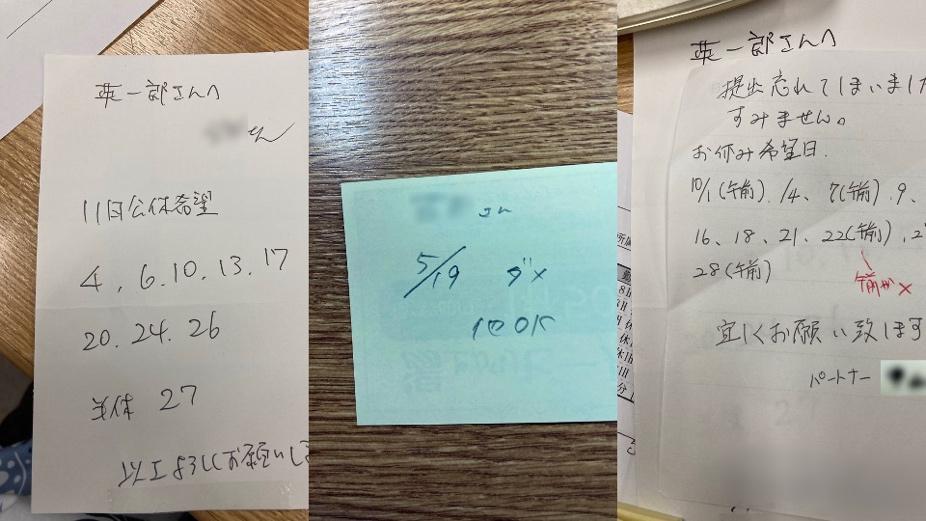 英一郎さんへ
さん
11日公休希望
4, 6. 10. 13. 17
20. 24. 26
半休 27
以上よろしくお願いし
さん
5/19 ダ×
1日OK
英一郎さんへ
提出忘れてしまいました
すみません。
お休み希望日.
10/1(午前). 4、7(午前). 9、
16、18、21、22(午前)、2
午前が×
28(午前)
宜しくお願い致します
パートナー